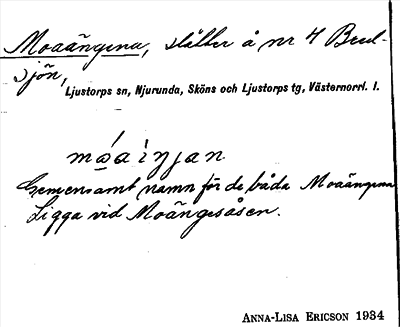 Moaängena, slåtter å nr 4 Bred-
sjön,
Ljustorps sn, Njurunda, Sköns och Ljustorps tg, Västernorrl. l.
móaìŋjan
Gemensamt namn för de båda Moaängena
Ligga vid Moängesåsen.
ANNA-LISA ERICSON 1934